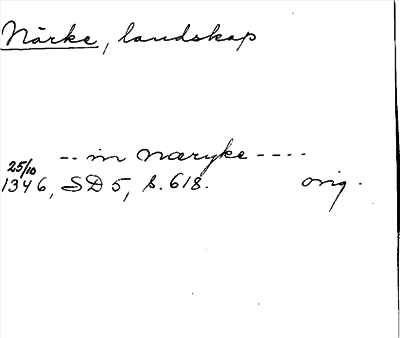 Närke, landskap
-- in Næryke ----
25/10
1346, SD 5, s. 618. orig.